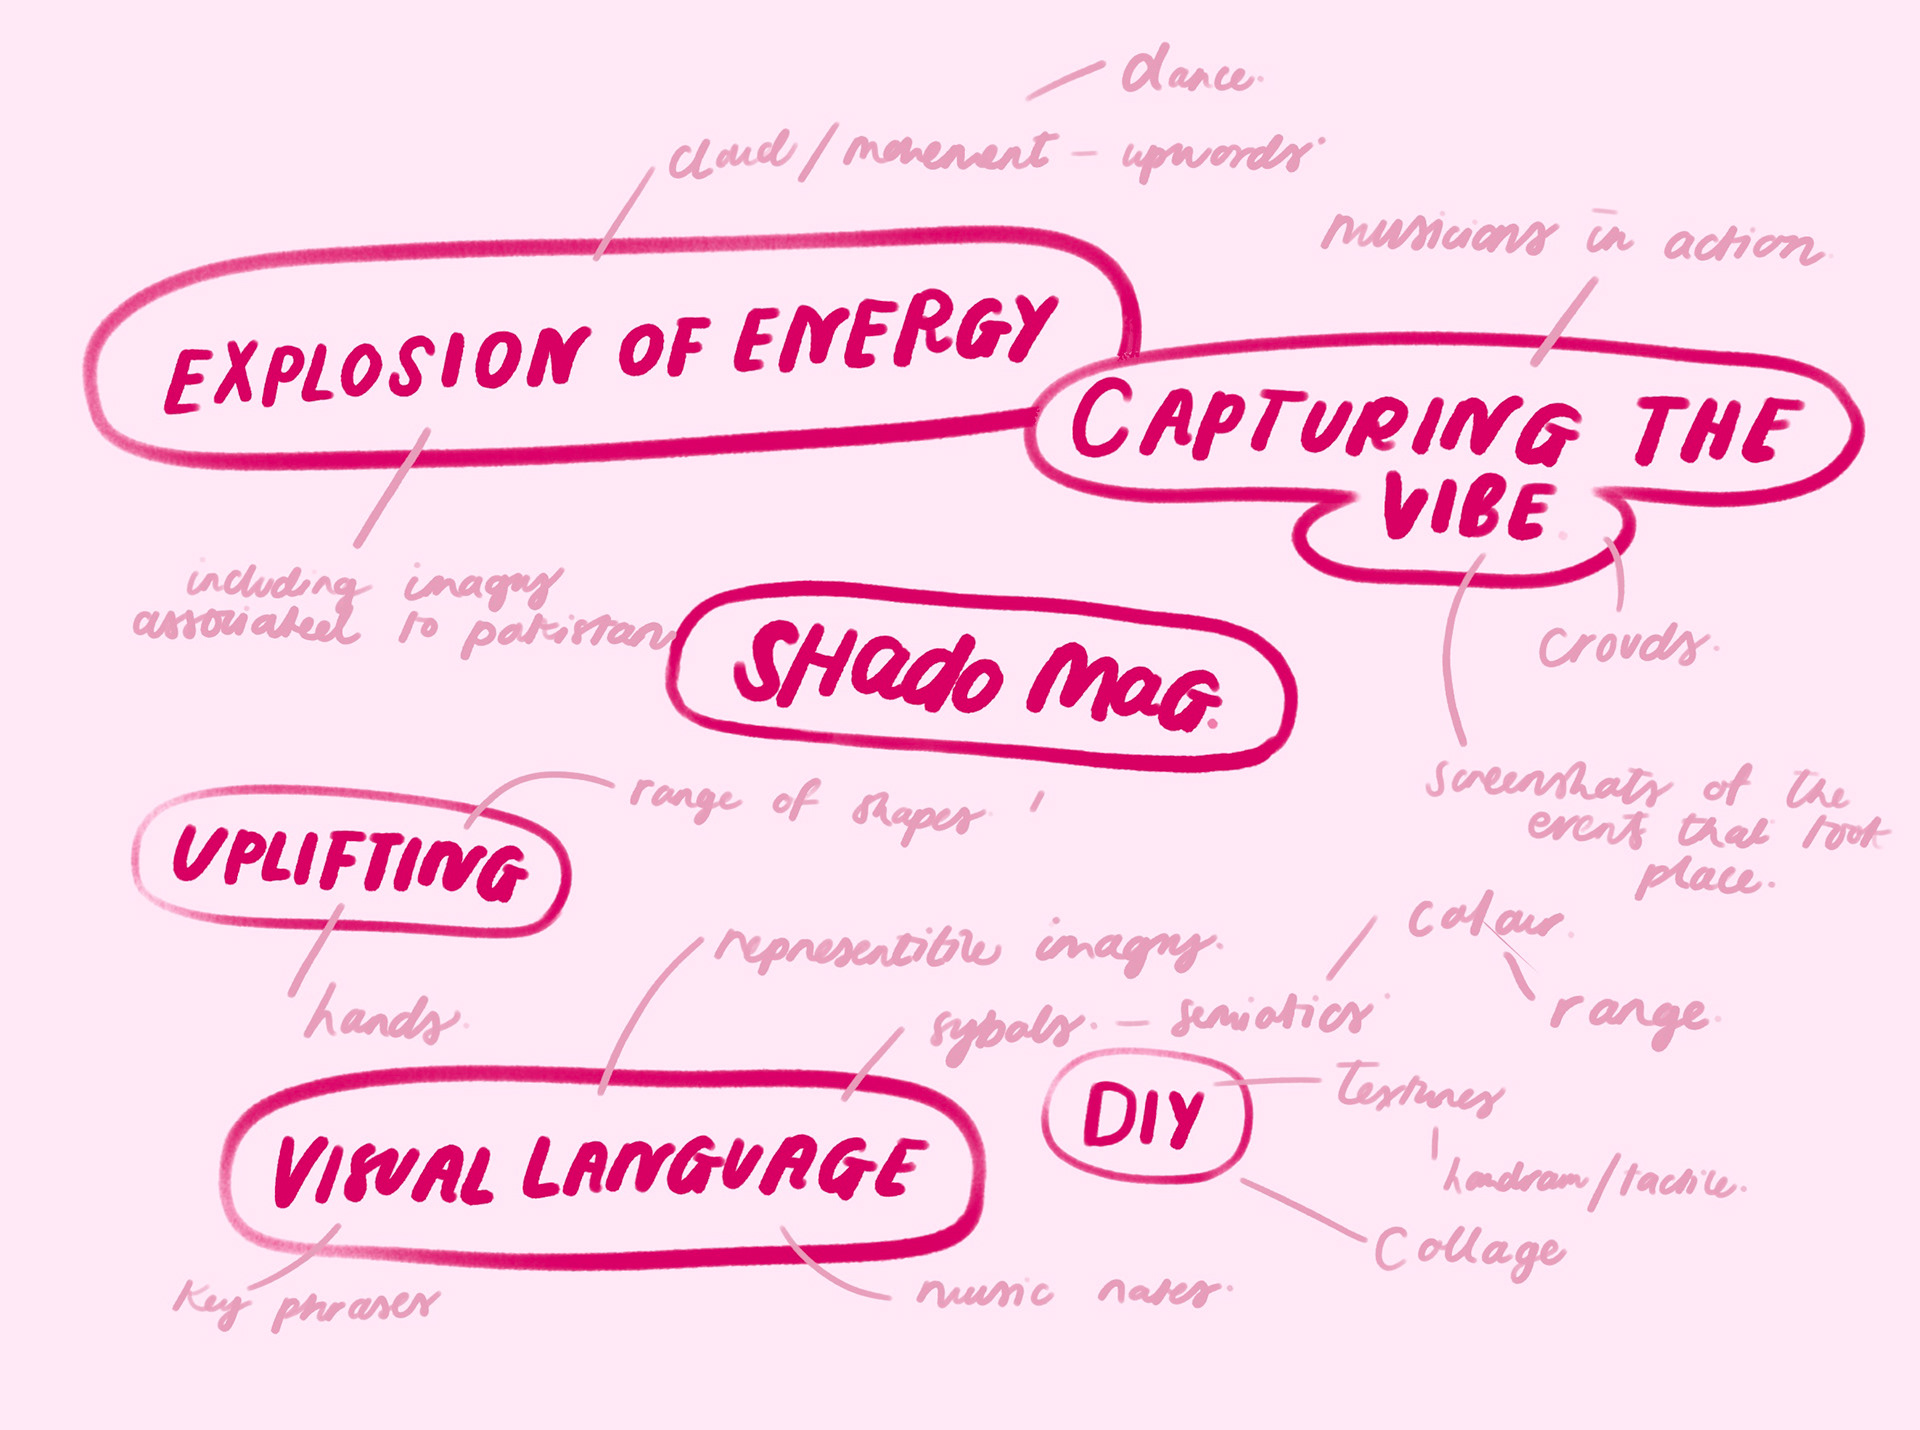 dance.
cloud / movement - upwords.
musicians in action.
EXPLOSION OF ENERGY
CAPTURING THE
VIBE.
including imagry
associated to pakistan
crowds.
SHado Mag.
screenshots of the
events that took
place.
range of shapes
UPLIFTING
hands.
representitive imagry.
colour.
sybols. - semiotics.
range.
VISUAL LANGUAGE
DIY
Textures
handrawn / tactile.
Collage
Key phrases
music notes.